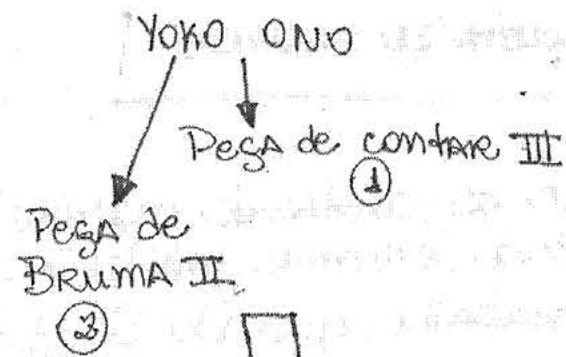 YOKO ONO
Peça de contar III
1
Peça de
BRUMA II
2